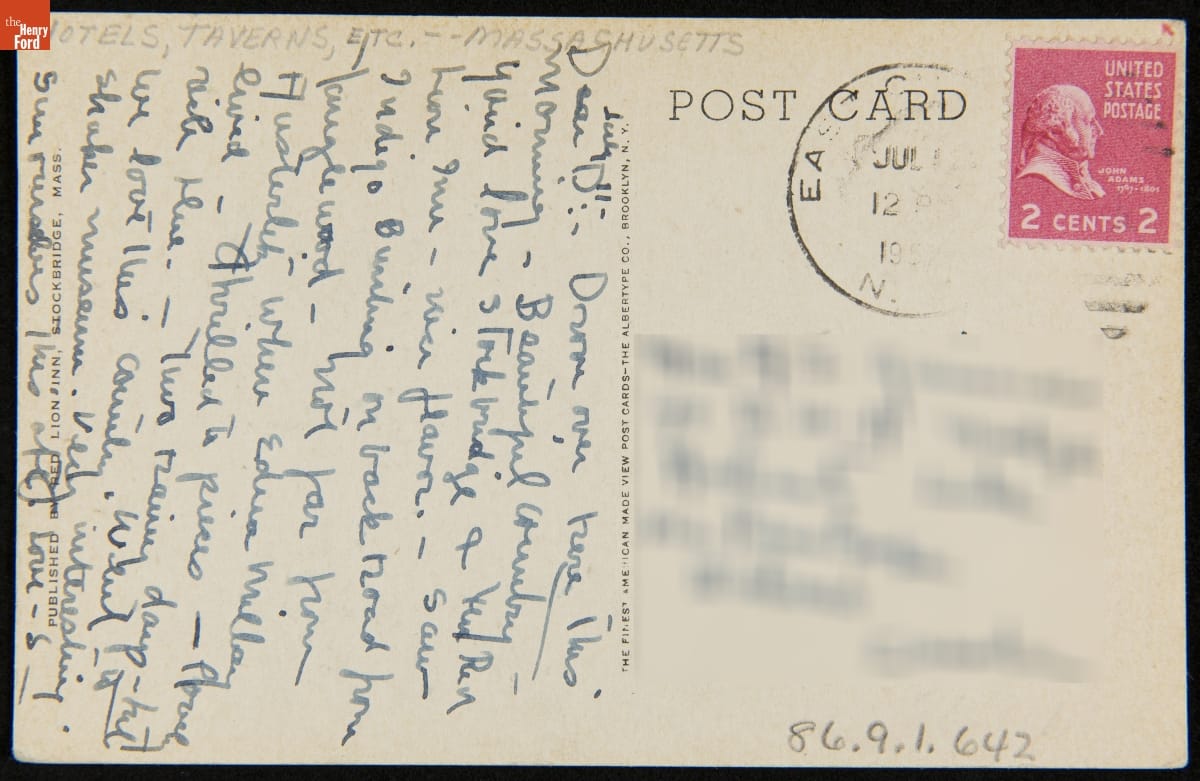 the
Henry
Ford
HOTELS, TAVERNS, ETC. -- MASSACHUSETTS
POST CARD
UNITED
STATES
POSTAGE
JOHN
ADAMS
1797-1801
2 CENTS 2
EAS
JUL
12 P
195
N.
July
Dear D:- Drove over here this
morning - Beautiful country -
love Stockbridge & the Red
Lion Inn - nice flavor. - Saw
Indigo Bunting on back road from
Tanglewood - not far from
"Austerlitz" where Edna Millay
lived - Thrilled to pieces -
blue. - Two rainy days - but
we love this country. Went to
Shaker museum. Very interesting.
Love - S -
PUBLISHED BY RED LION INN, STOCKBRIDGE, MASS.
THE FINEST AMERICAN MADE VIEW POST CARDS-THE ALBERTYPE CO., BROOKLYN, N. Y.
86.9.1.642